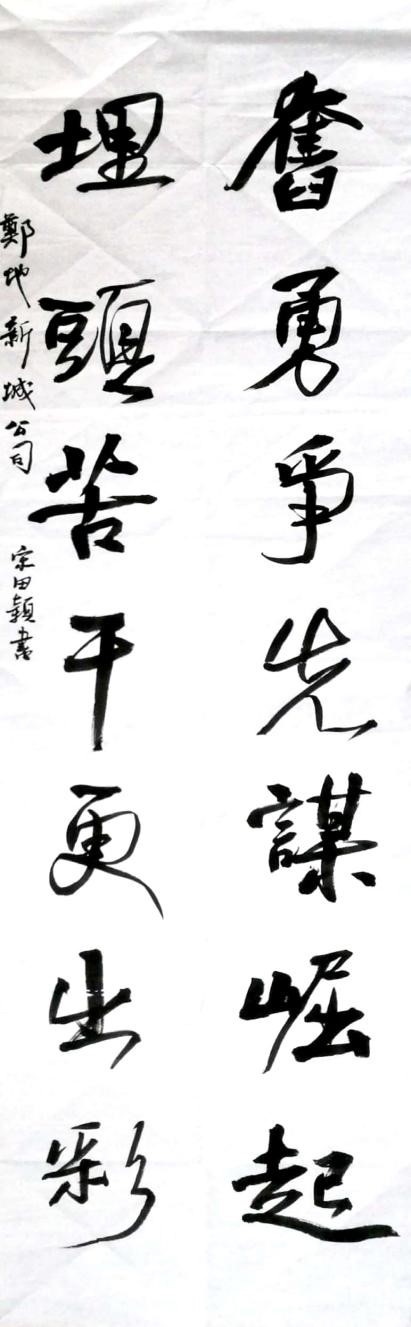 奮勇爭先謀崛起
埋頭苦干更出彩
鄭地新城公司 宗田穎書